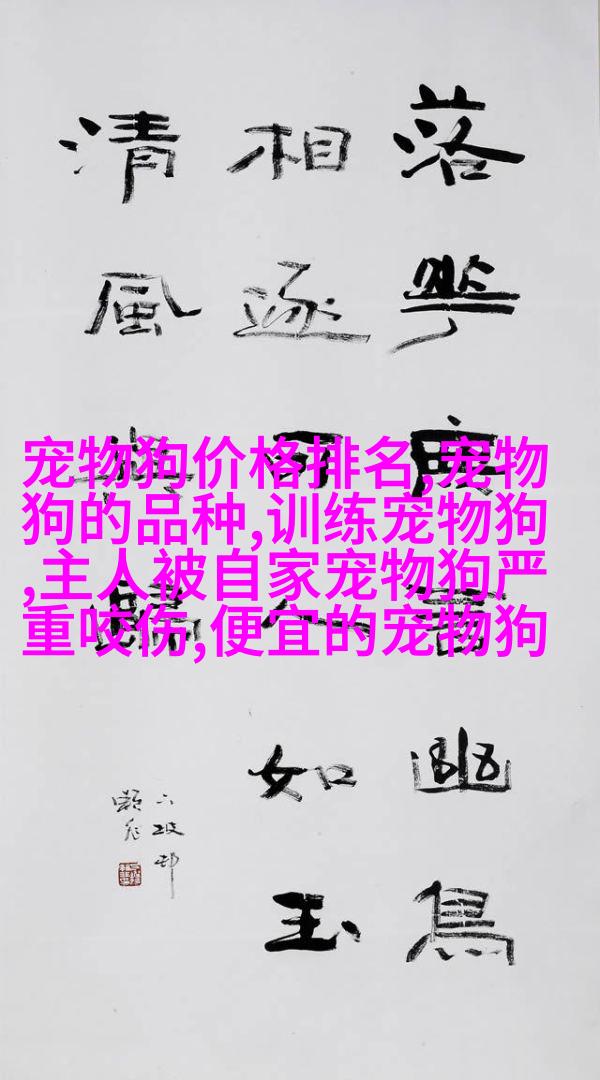 落華言幽鳥
相逐可人如玉
清風與歸
宠物狗价格排名,宠物
狗的品种,训练宠物狗
,主人被自家宠物狗严
重咬伤,便宜的宠物狗